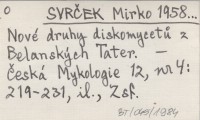 SVRČEK Mirko 1958...
Nové druhy diskomycetů z
Belanských Tater. —
Česká Mykologie 12, nr 4:
219-231, il., Zsf.
BT/040/1984